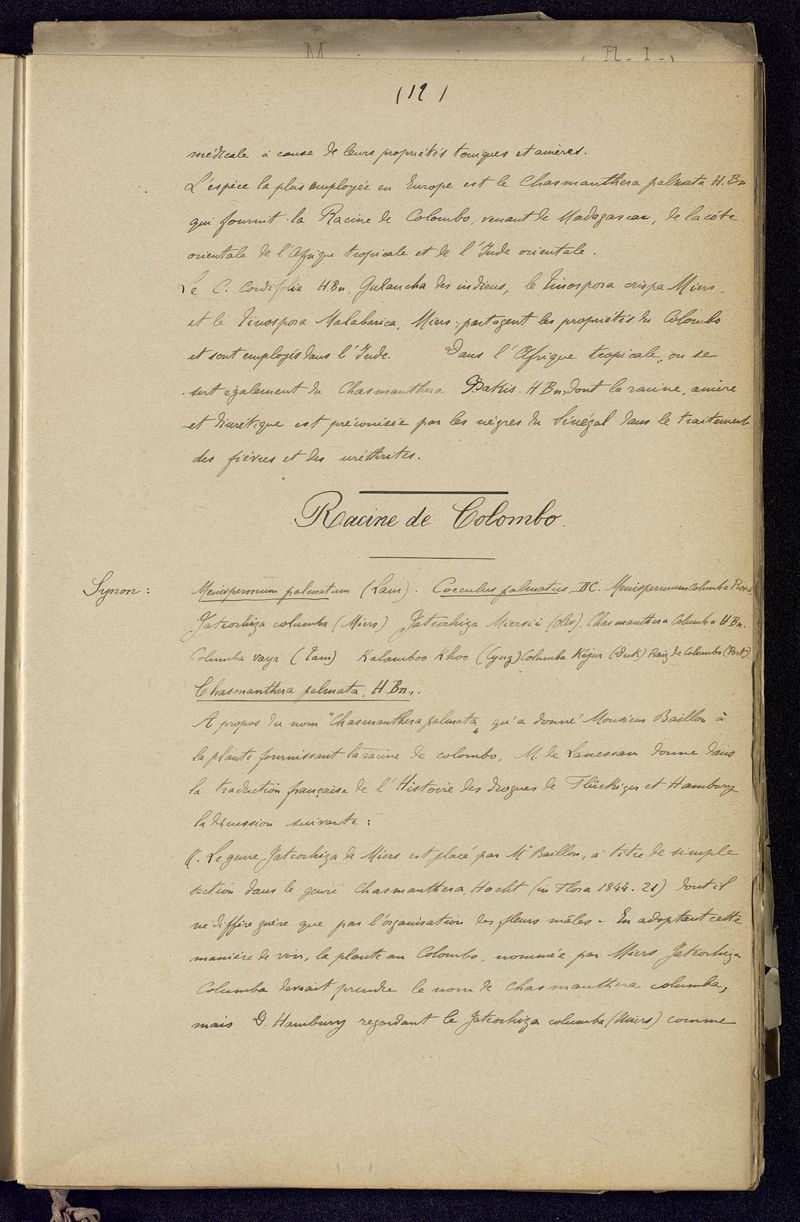 M (Pl. I.)
(12)
médicale à cause de leurs propriétés toniques et amères.
L'espèce la plus employée en Europe est le Chasmanthera palmata H. Bn
qui fournit la Racine de Colombo, venant de Madagascar, de la côte
orientale de l'Afrique tropicale et de l'Inde orientale.
Le C. Cordifolia H Bn. Gulancha des indiens, le Tinospora crispa Miers,
et le Tinospora Malabarica, Miers; partagent les propriétés du Colombo
et sont employés dans l'Inde. Dans l'Afrique tropicale, on se
sert également du Chasmanthera Bakis H Bn, dont la racine, amère
et diurétique est préconisée par les nègres du Sénégal dans le traitement
des fièvres et des uréthrites.
Racine de Colombo.
Synon: Menispermum palmatum (Lam). Cocculus palmatus DC. Menispermum Columba Roxb.
Jateorhiza columba (Miers) Jateorhiza Miersii (Oliv). Chasmanthera Columba H Bn.
Columba vaya (Tam) Kalamboo Khoo (Cyng) Columba Kejua (Duk) Raiz de Columbo (Port).
Chasmanthera palmata. H Bn.
A propos du nom "Chasmanthera palmata" qu'a donné Monsieur Baillon à
la plante fournissant la racine de colombo, M. de Lanessan donne dans
la traduction française de l'Histoire des drogues de Flückiger et Hanbury
la discussion suivante:
"Le genre Jateorhiza de Miers est placé par Mr Baillon, à titre de simple
section dans le genre Chasmanthera Hocht (in Flora 1844. 21) dont il
ne diffère guère que par l'organisation des fleurs mâles. En adoptant cette
manière de voir, la plante au Colombo, nommée par Miers Jateorhiza
Columba devrait prendre le nom de Chasmanthera columba,
mais D. Hambury regardant le Jateorhiza columba (Miers) comme